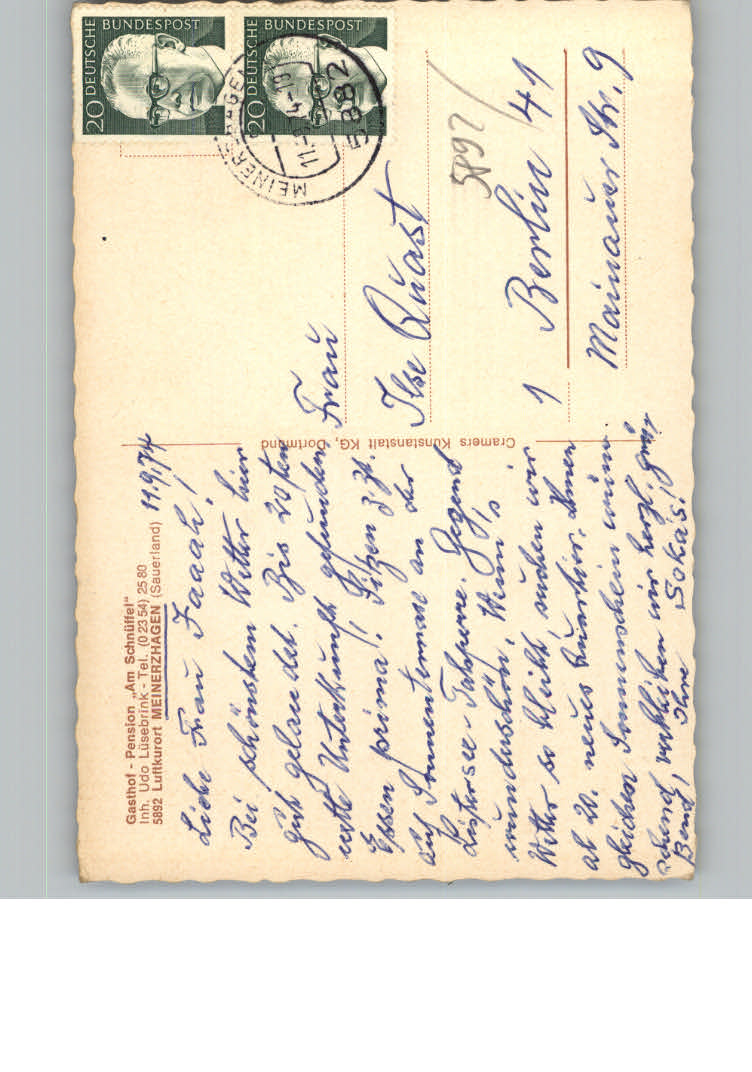 Gasthof - Pension „Am Schnüffel"
Inh. Udo Lüsebrink - Tel. (0 23 54) 25 80
5892 Luftkurort MEINERZHAGEN (Sauerland)
11.9.74
Liebe Frau Faaah!
Bei schönstem Wetter hier
gut gelandet. Bis 20ten
nette Unterkunft gefunden.
Essen prima!! Sitzen z. Zt.
auf Sonnenterrasse an der
Listersee-Talsperre. Gegend
wunderschön. Wenn's
Wetter so bleibt, suchen wir
ab 20. neues Quartier. Ihnen
gleichen Sonnenschein wün-
schend, verbleiben mit herzl. Gruß
Bend! Ihre Sokas!
Cramers Kunstanstalt KG, Dortmund
20 DEUTSCHE BUNDESPOST
20 DEUTSCHE BUNDESPOST
5882 MEINERZHAGEN
11.-9.74-19
5892
Frau
Ilse Quast
1 Berlin 41
Mainauer Str. 9